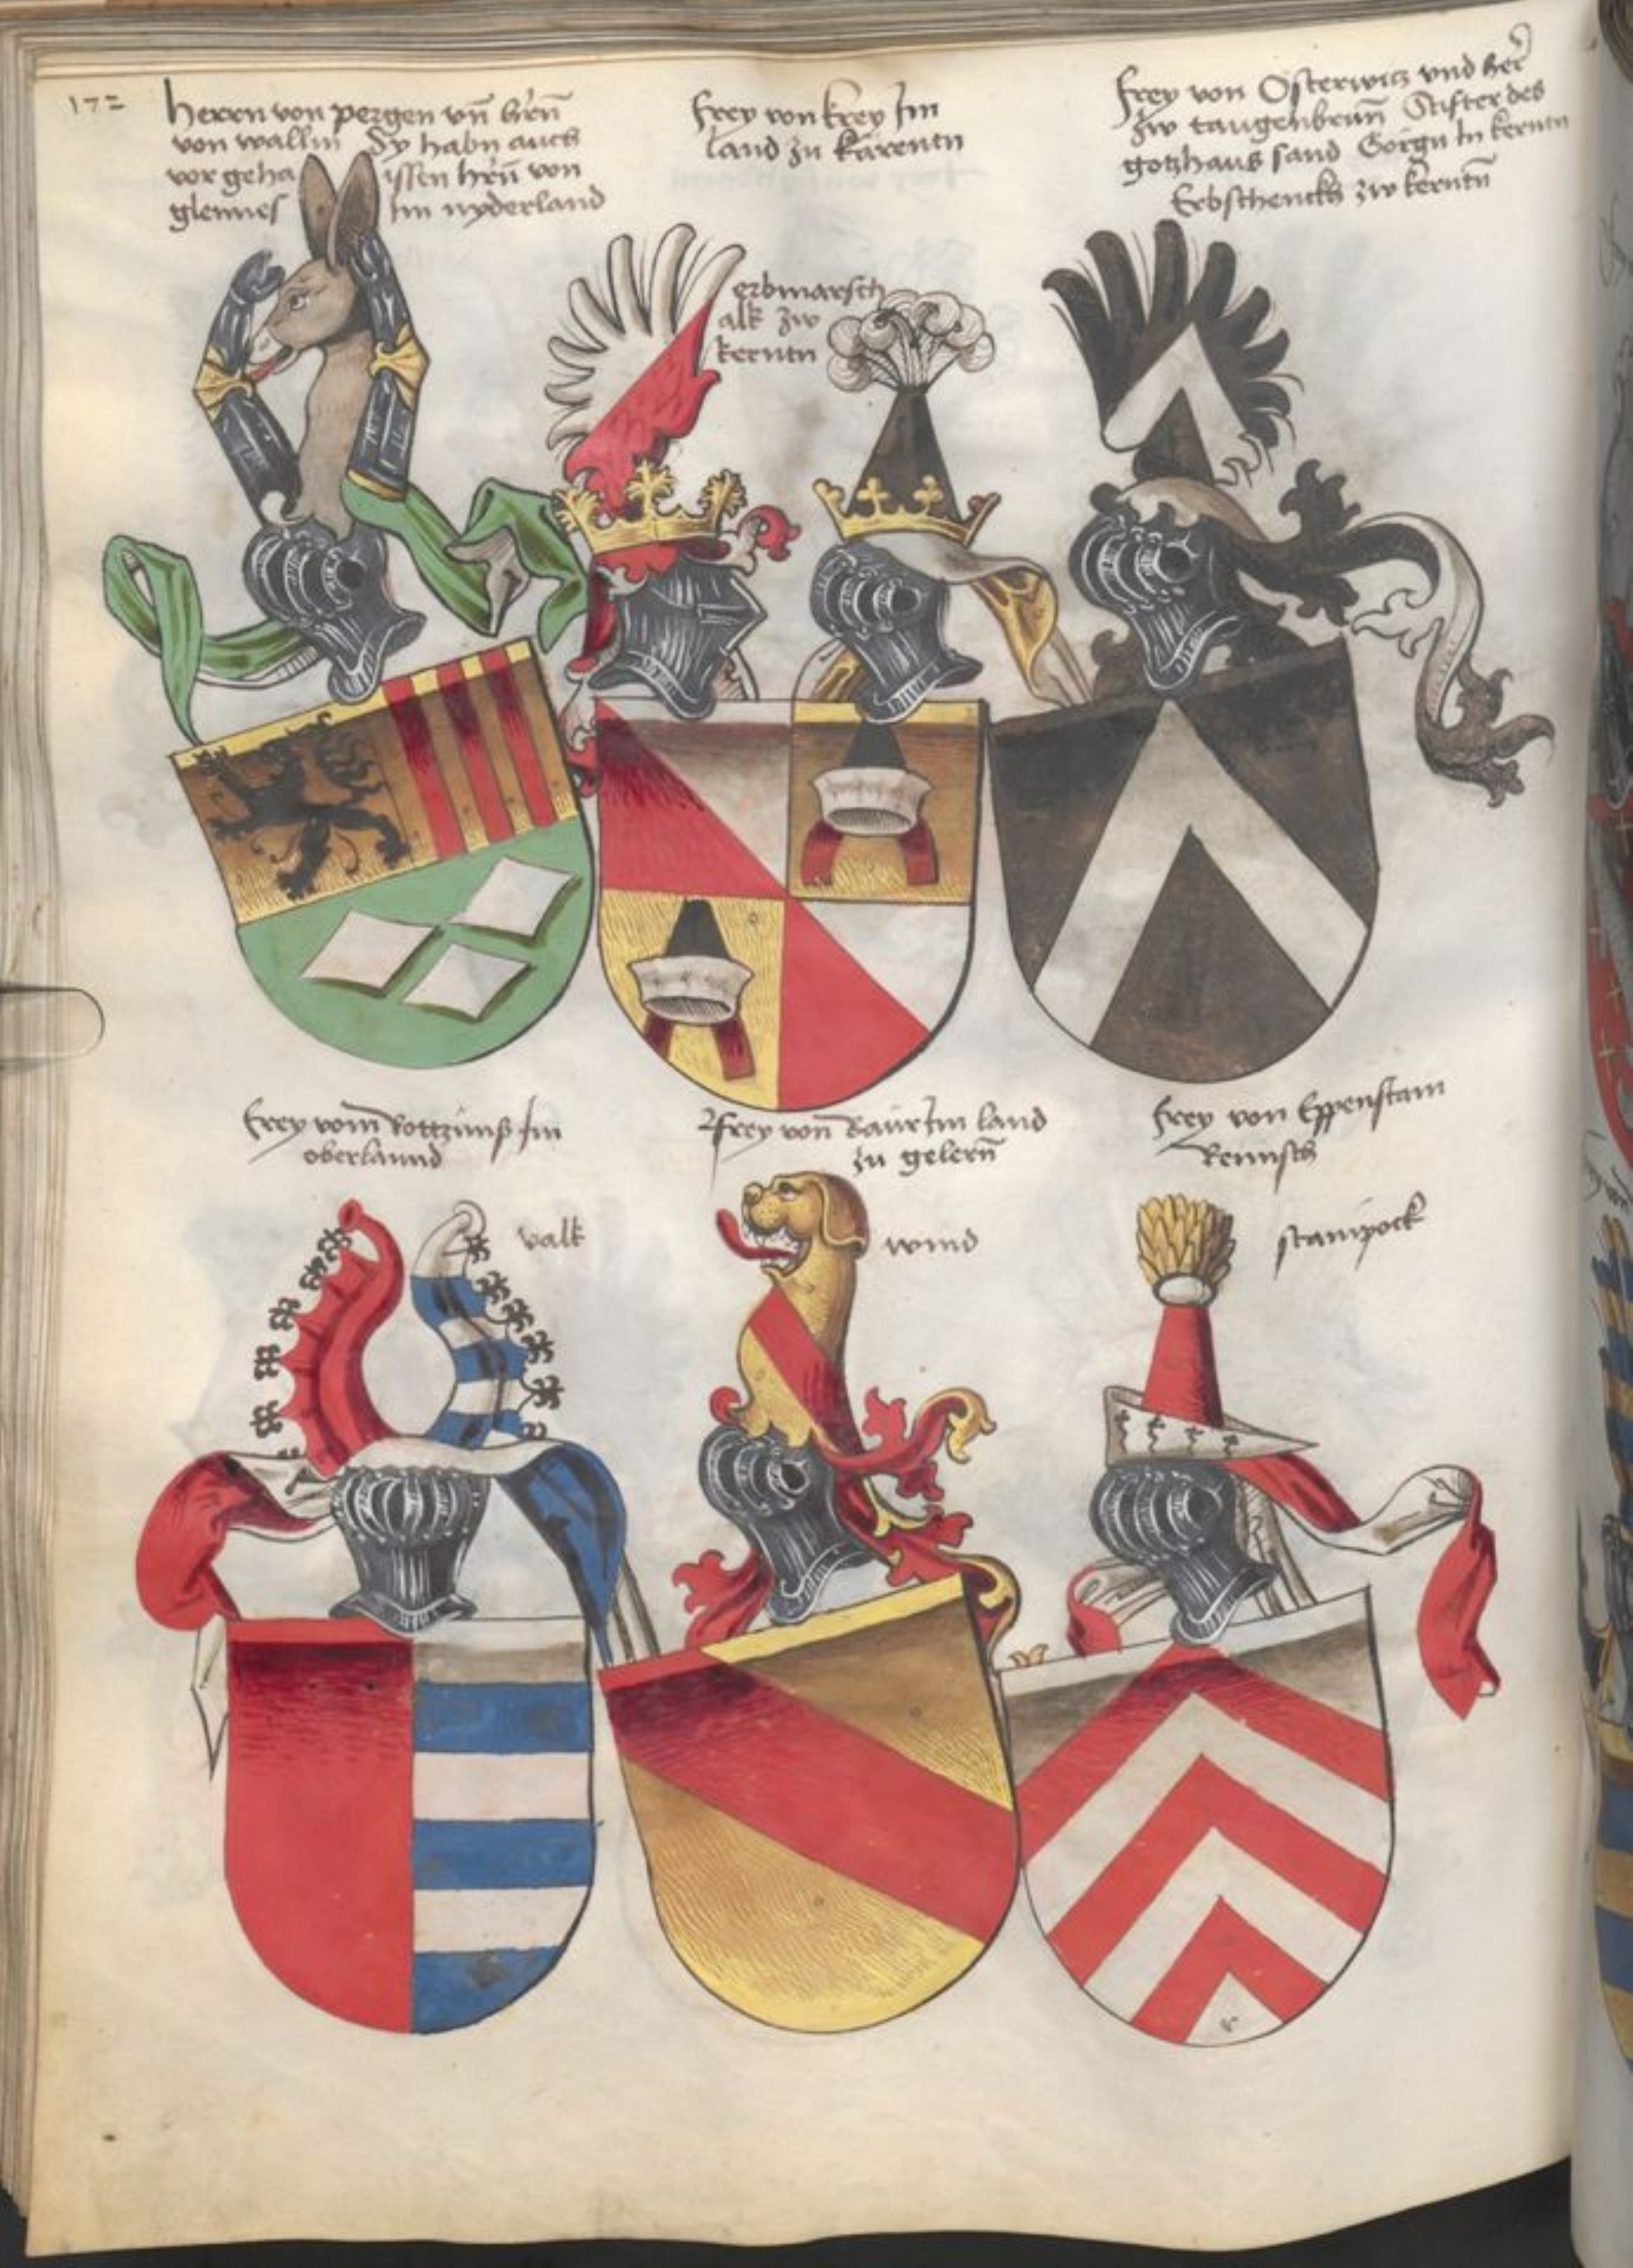 172
herrn von pergen vn̄ hrn̄
von wallin Sy habn auch
vor geha issen hrn̄ von
glennes Im nyderland
Frey von Krey Im
land zu karentn
erbmarsch
alk zw
kerntn
Frey von Osterwitz vnd her
zw taugenbrun̄ Stifter des
gotzhaus sand Gorgn In kerntn
Erbschenckh zw kerntn̄
Frey vom Im
oberlannd
Frey von Baür Im land
zu gelern̄
Frey von Eppenstain
Reinisch
valk
wind
stainpock